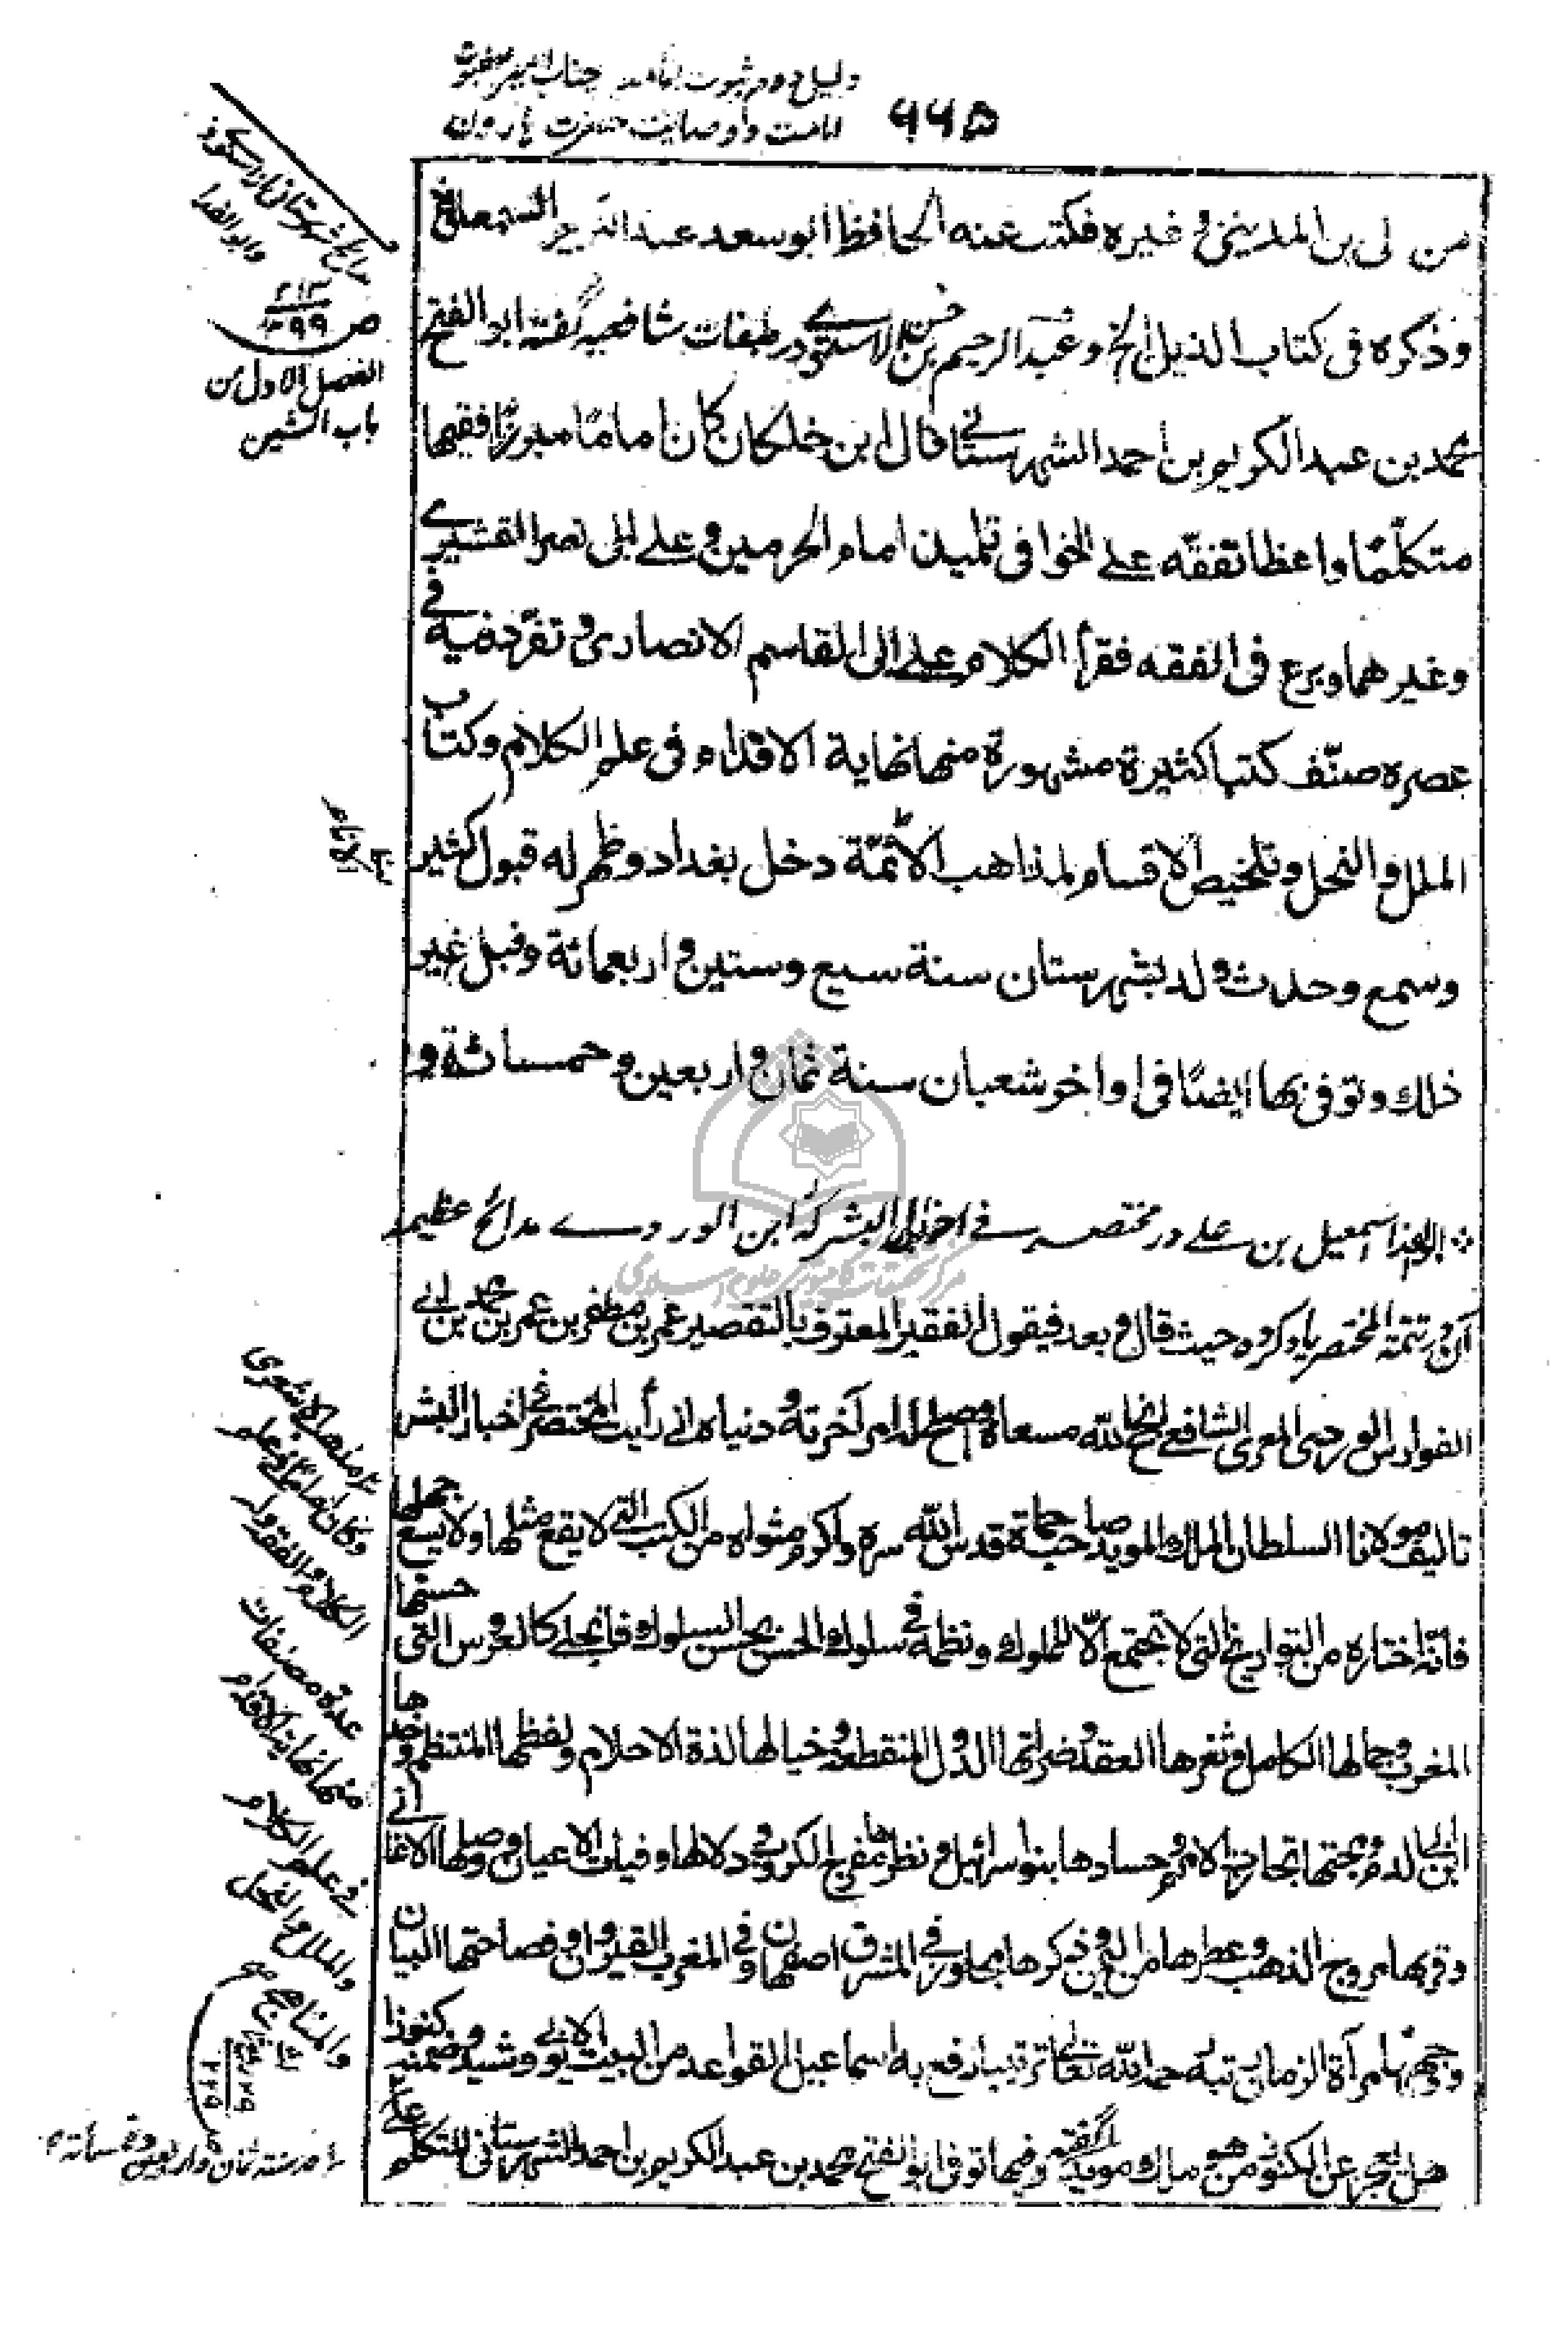 دلیل دوم ثبوت امامت جناب امیر
امامت و وصایت حضرت هارون
۶۶۵
مدائح شهرستانی از اسنوی
وابو الفدا
ص ۲۱۳ ۲۹۹
الفصل الاول من
باب الشین
من لی بن المدینی و غیره فکتب عنه الحافظ ابو سعد عبد الکریم السمعانی
وذکره فی کتاب الذیل الخ وعبد الرحیم بن حسن الاسنوی در طبقات شافعیه گفته ابو الفتح
محمد بن عبد الکریم بن احمد الشهرستانی قال ابن خلکان کان امامًا مبرزًا فقیها
متکلّمًا واعظا تفقّه علی الخوافی تلمیذ امام الحرمین و علی ابی نصر القشیری
وغیرهما و برع فی الفقه فقرأ الکلام علی ابی القاسم الانصاری و تفرّد فیه فی
عصره صنّف کتبا کثیرة مشهورة منها نهایة الاقدام فی علم الکلام و کتاب
الملل و النحل و تلخیص الاقسام لمذاهب الائمّة دخل بغداد و ظهر له قبول کثیر
الانام
وسمع و حدث ولد بشهرستان سنة سبع وستین و اربعمائة وقیل غیر
ذلک و توفی بها ایضًا فی اواخر شعبان سنة ثمان و اربعین و خمسمائة و
اسمعیل بن علی در مختصر فی اخبار البشر که ابن الوردی مدائح عظیمه
آن در تتمة المختصر یاد کرده حیث قال و بعد فیقول الفقیر المعترف بالتقصیر عمر بن مظفر بن عمر بن محمد بن ابی
الفوارس الوردی المعری الشافعی انجح الله مسعاه و اصلح له امر آخرته و دنیاه انی رأیت المختصر فی اخبار البشر
تالیف مولانا السلطان الملک الموید صاحب حماة قدس الله سره و اکرم مثواه من الکتب التی لا یقع مثلها ولا یسع جهلها
فانّه اختاره من التواریخ التی لا تجتمع الّا للملوک و نظمه فی سلوک الحسن بحسن السلوک فانجلی کالعروس التی حسنها
المغرب و جمالها الکامل و ثغرها العقد و ضرتها الدول المنقطعه و خیالها لذة الاحلام و لفظها المنتظم و خدها
ابن ابی الدم و بهجتها تجارب الامم و حسادها بنو اسرائیل و نظرها مفرج الکروب و دلالها وفیات الاعیان و وصلها الاغانی
وقربها مروج الذهب و عطرها من الیمن و ذکرها یجاوز فی المشرق اصفهان و فی المغرب القیروان و فصاحتها البیان
ووجهها مرآة الزمان رتبه رحمه الله تعالی ترتیبا رفع به اسماعیل القواعد من البیت الایوبی و شید و ضمنه کنوزا
هل یعجز عن الکنوز من هو ملک و موید الخ گفته و فیها توفی ابو الفتح محمد بن عبد الکریم بن احمد الشهرستانی المتکلم علی
مذهب الاشعری
وکان اماما فی علم
الکلام و الفقه وله
عدة مصنفات
منها نهایة الاقدام
فی علم الکلام
والملل و النحل
والمناهج
۲۲۵